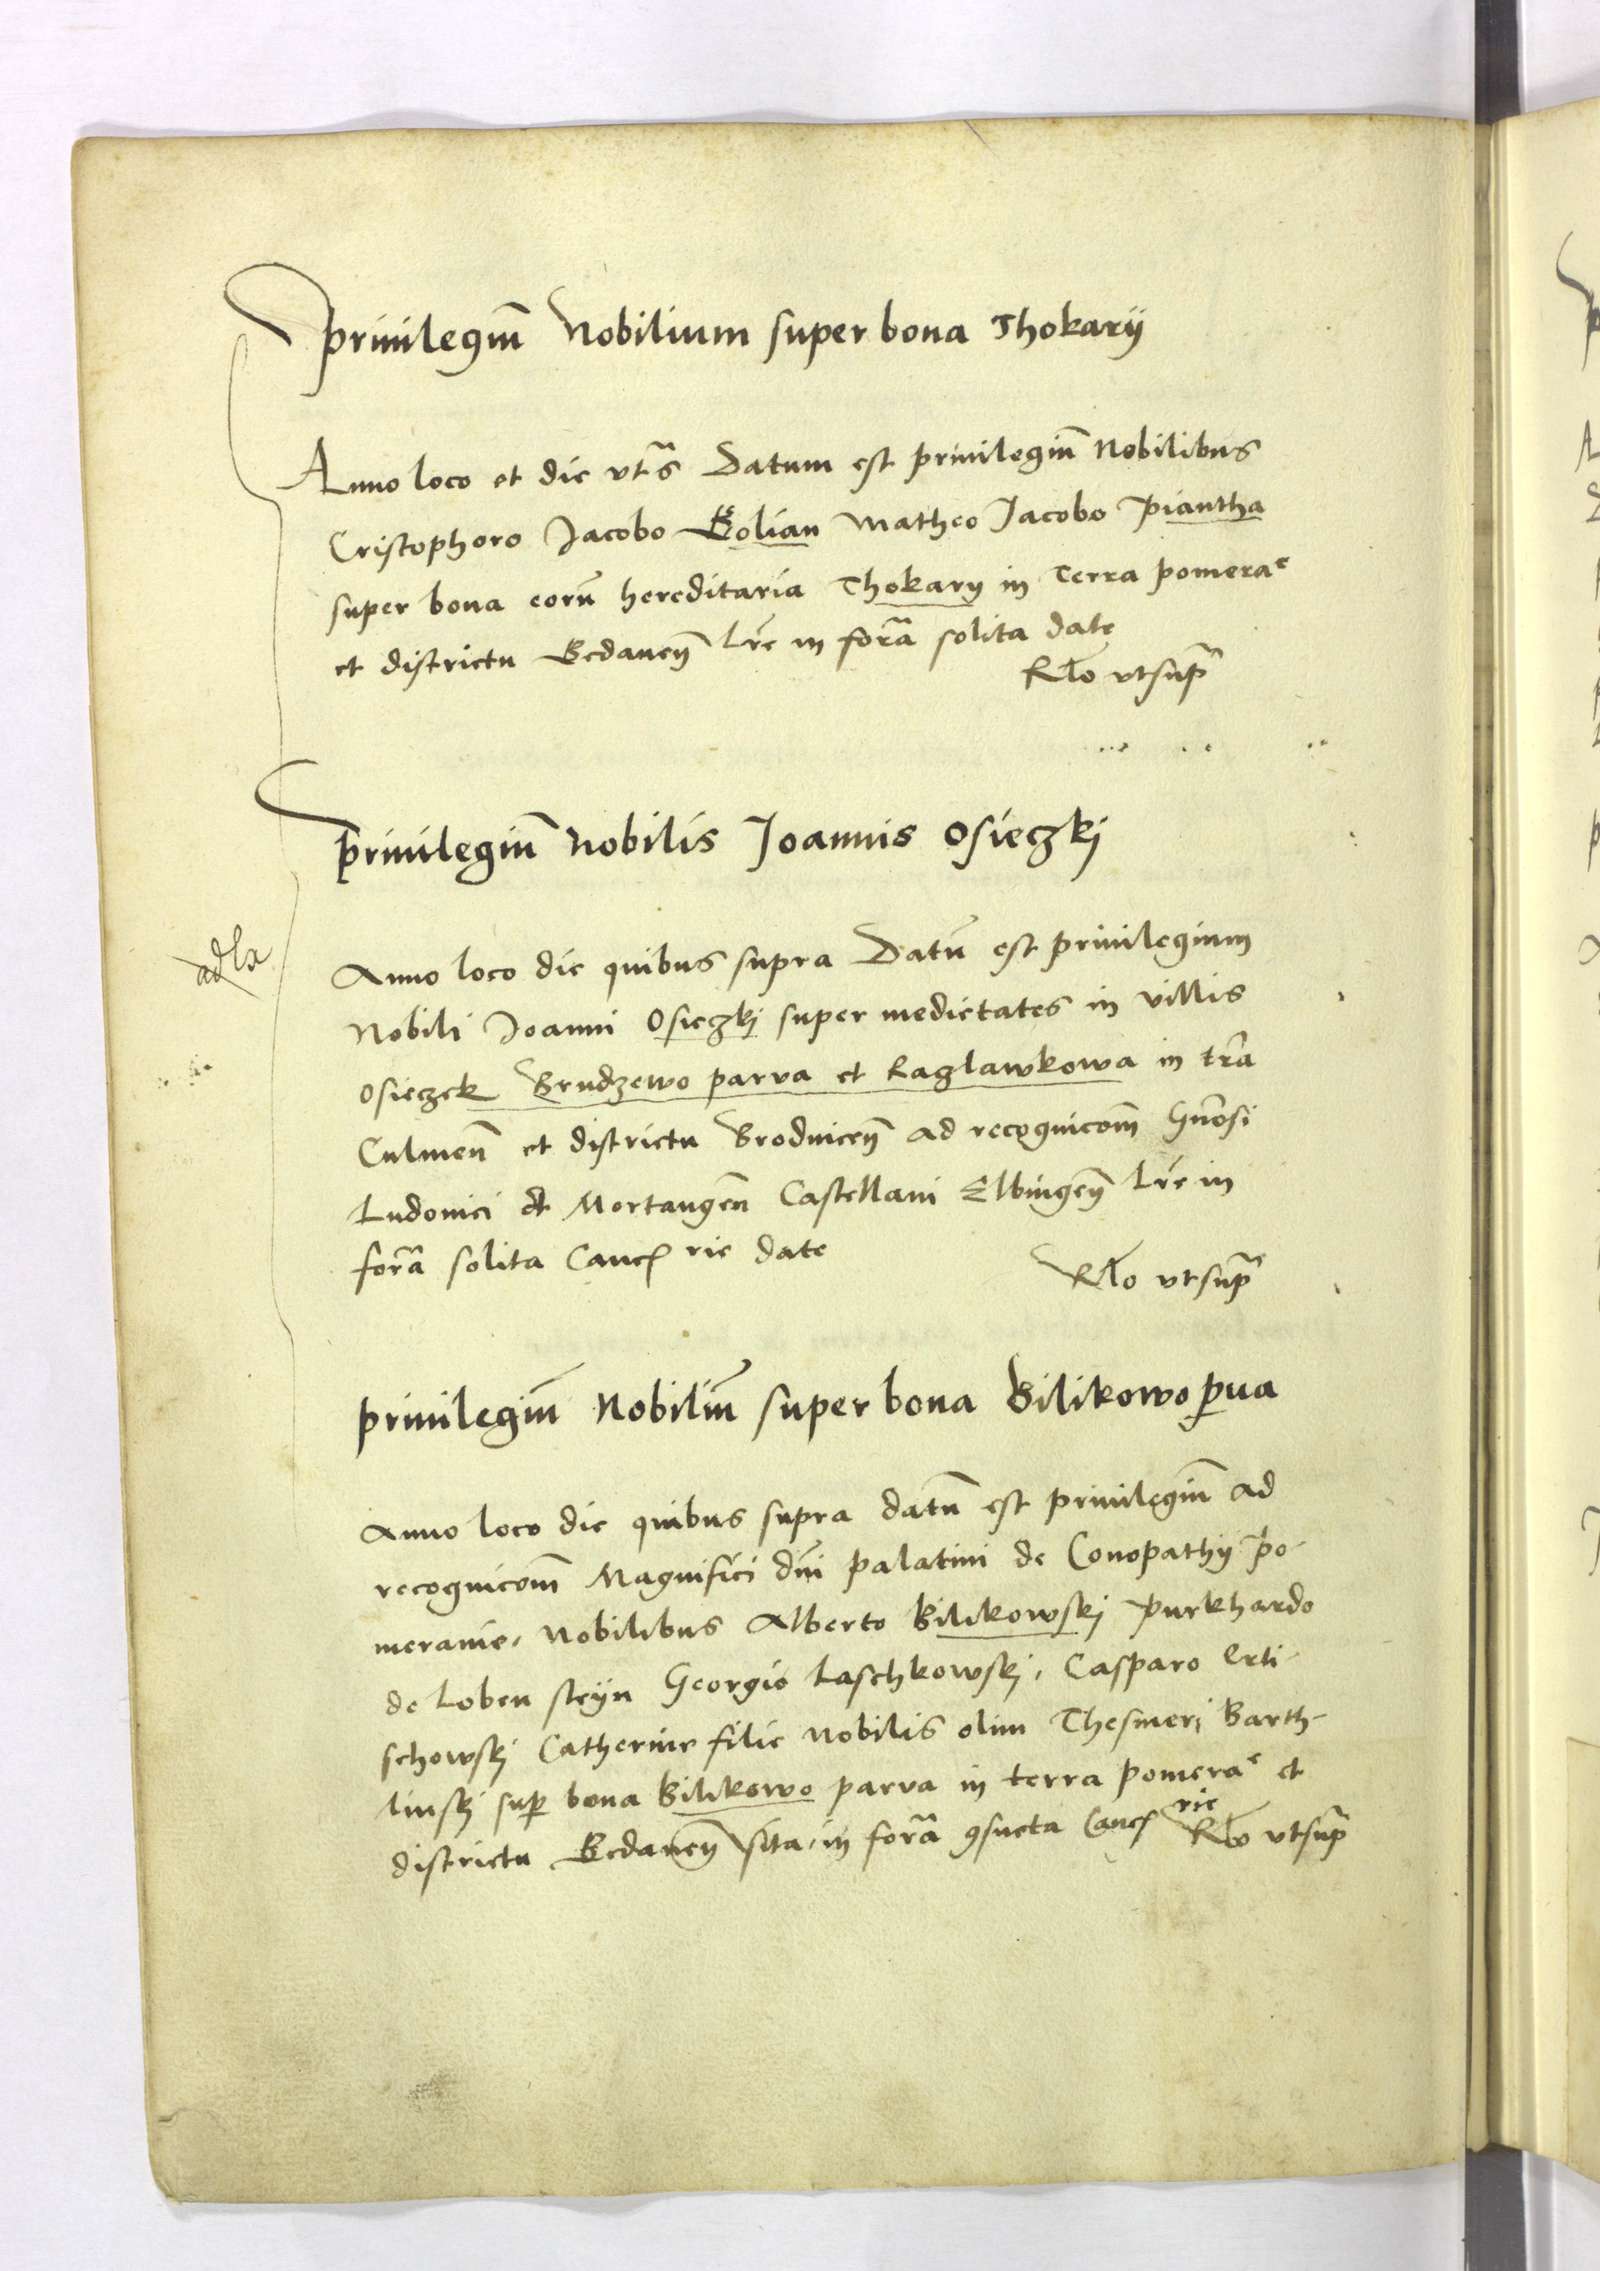 Priuilegiũ Nobilium super bona Thokarÿ
Anno loco et die vts̃ Datum est priuilegiũ Nobilibus
Cristophoro Jacobo Golian Matheo Jacobo Piantha
super bona eorũ hereditaria Thokary in Terra pomeraᵉ
et districtu Gedaneñ Lr̃e in for̃a solita date
Rl̃o vtsup̃
Priuilegiũ Nobilis Joannis Osieczkj
Anno loco die quibus supra Datũ est priuilegium
Nobili Joanni Osieczkj super medietates in villis
Osieczek Brudzewo parva et Raglawkowa in tr̃a
Culmeñ et districtu Brodniceñ ad recognicom̃ Gñosi
Ludovici de Mortangeñ Castellani Elbingeñ Lr̃e in
for̃a solita Canc̃ rie date
Rl̃o vtsup̃
priuilegiũ Nobiliũ super bona Bilikowo p̱ua
Anno loco die quibus supra datũ est priuilegiũ ad
recognicom̃ Magnifici dñi palatini de Conopathÿ Po-
meranie, Nobilibus Alberto Bilikowskj Purkhardo
de Loben steÿn Georgio Laschkowskj, Casparo Erti-
schowskj Catherine filie Nobilis olim Thesmerj Barth-
linskj sup̱ bona Bilikowo parva in terra Pomeraᵉ et
districtu Gedaneñ sita, in for̃a ꝯsueta Canc̃ rie
Rl̃o vtsup̃